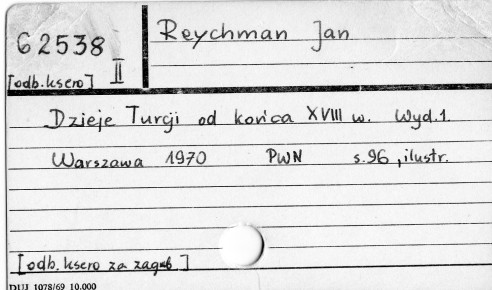 G 2538
II
[odb. ksero]
Reychman Jan
Dzieje Turcji od końca XVIII w. Wyd.1.
Warszawa 1970 PWN s.96, ilustr.
[odb. ksero za zagub]
DUJ 1078/69 10.000